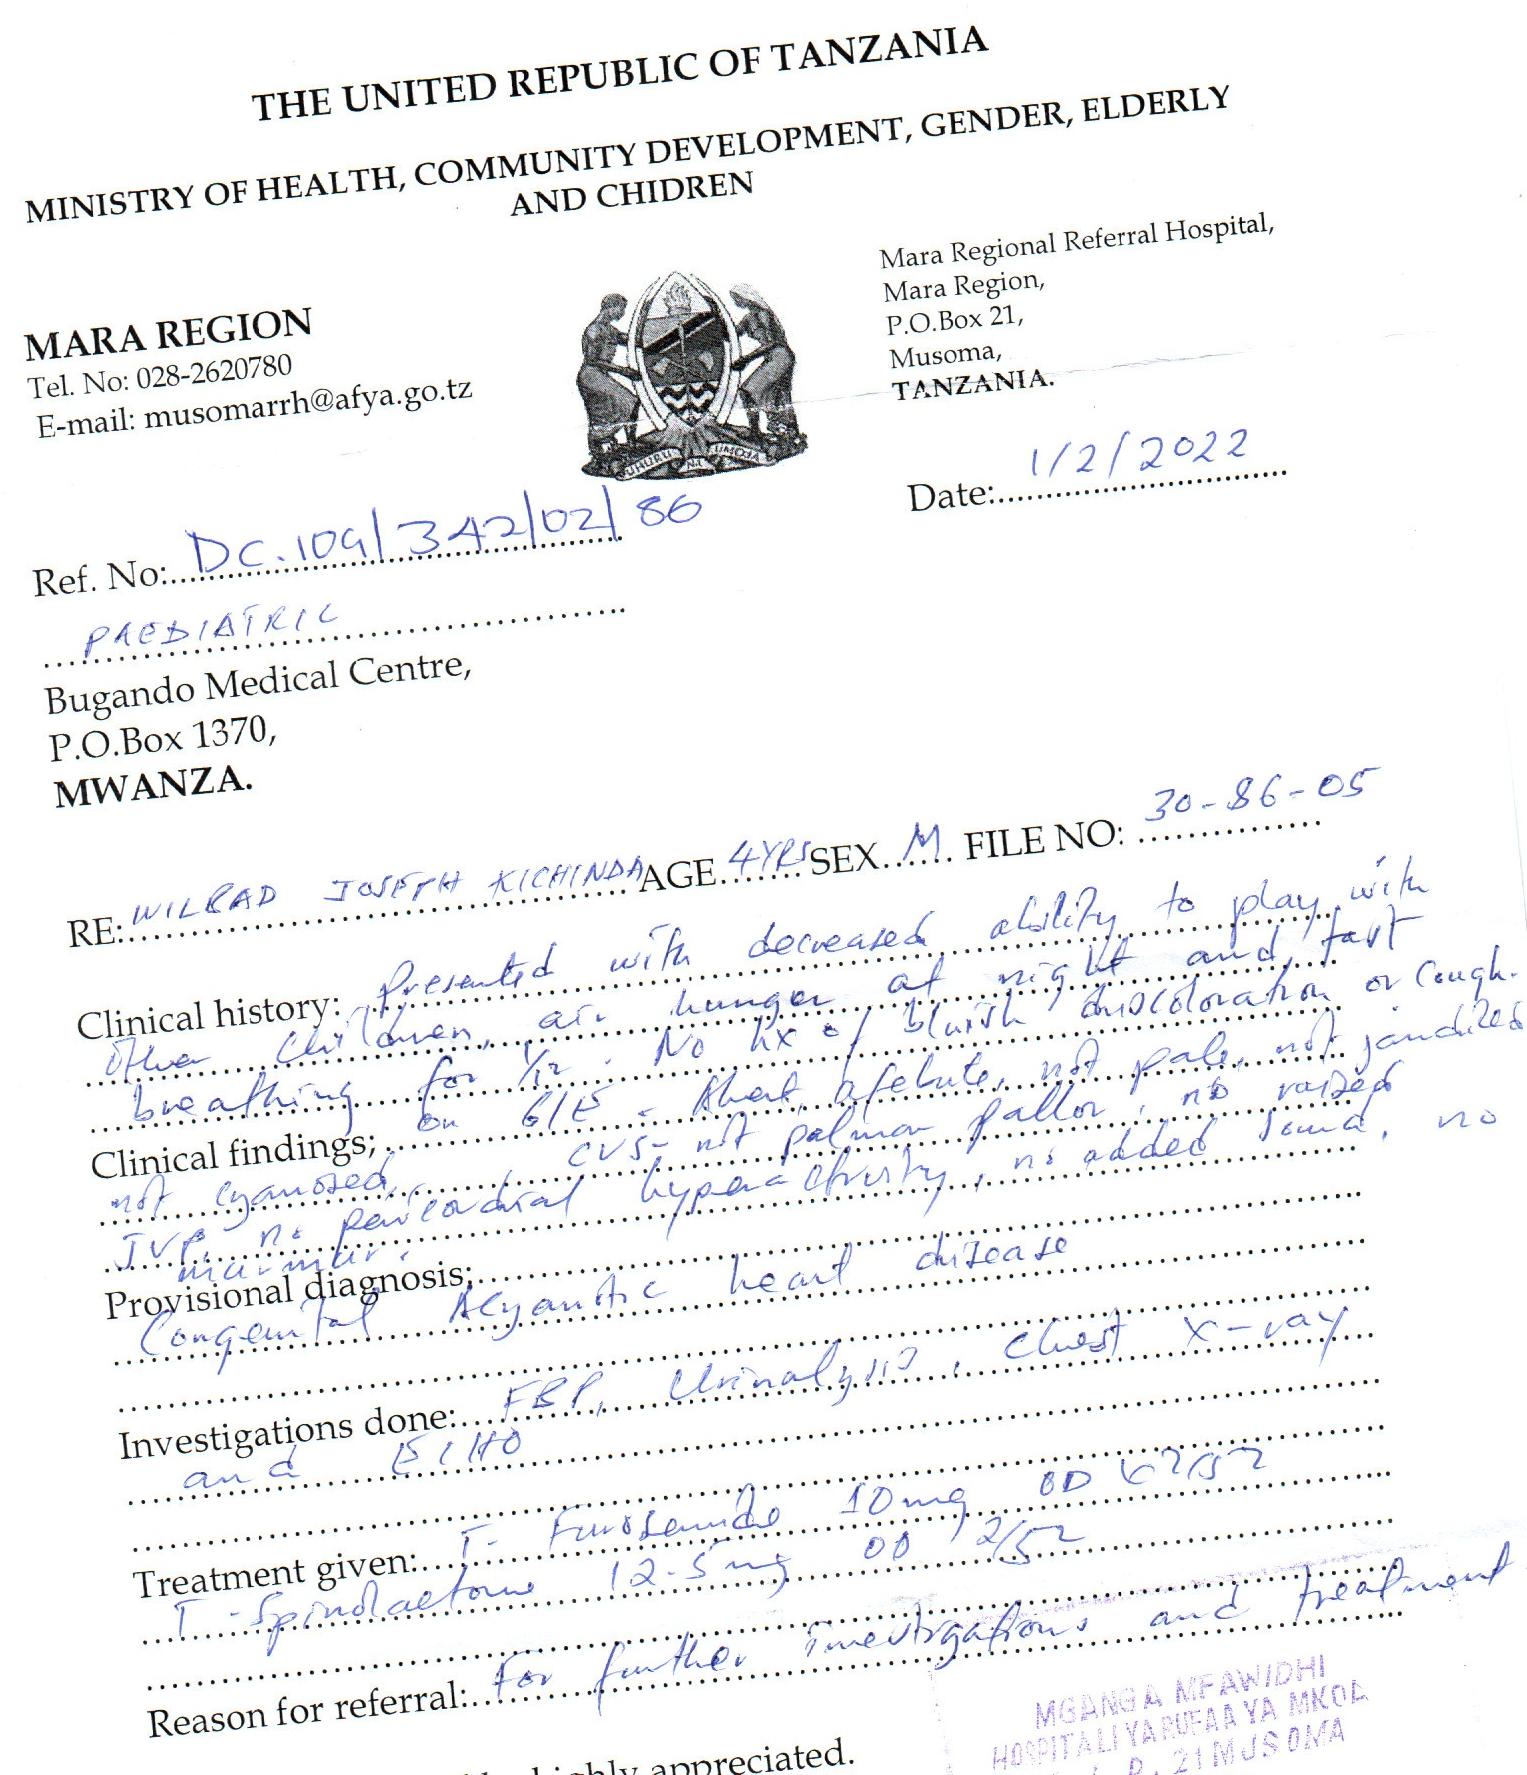 THE UNITED REPUBLIC OF TANZANIA
MINISTRY OF HEALTH, COMMUNITY DEVELOPMENT, GENDER, ELDERLY
AND CHIDREN
MARA REGION
Tel. No: 028-2620780
E-mail: musomarrh@afya.go.tz
Mara Regional Referral Hospital,
Mara Region,
P.O.Box 21,
Musoma,
TANZANIA.
UHURU NA UMOJA
Date: 1/2/2022
Ref. No: DC.109/342/02/86
PAEDIATRIC
Bugando Medical Centre,
P.O.Box 1370,
MWANZA.
RE: WILBAD JOSEPH KICHINDA AGE 4YRS SEX M FILE NO: 30-86-05
Clinical history: Presented with decreased ability to play with
other children, air hunger at night and fast
breathing for 1/12. No hx of bluish discoloration or cough.
Clinical findings; on G/E - Alert, afebrile, not pale, not jaundiced
not cyanosed, CVS- not palmar pallor, no raised
JVP, no pericordial hyperactivity, no added sound, no
murmur.
Provisional diagnosis;
Congenital Acyanotic heart disease
Investigations done: FBP, Urinalysis, chest X-ray
and ECHO
Treatment given: T- Furosemide 10mg OD 2/52
T- Spinolactone 12.5mg OD 2/52
Reason for referral: For further investigations and treatment
highly appreciated.
MGANGA MFAWIDHI
HOSPITALI YA RUFAA YA MKOA
P. 21 MUSOMA